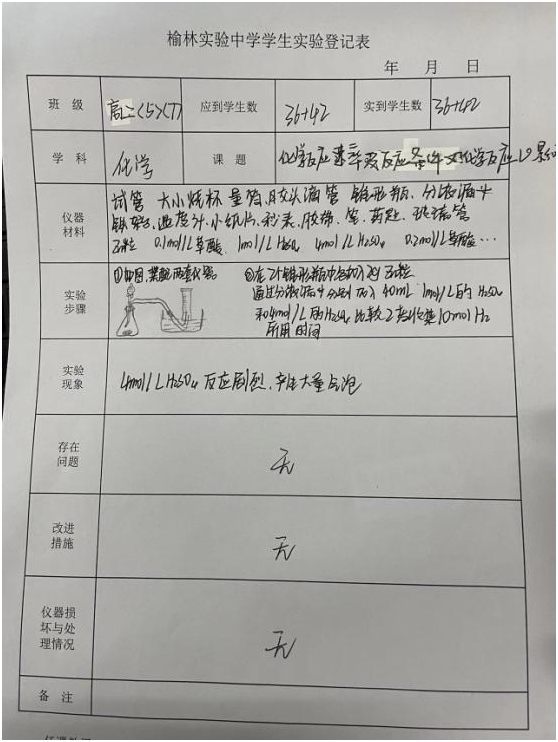 榆林实验中学学生实验登记表
年 月 日
班 级 高二(5)(7) 应到学生数 36+42 实到学生数 36+42
学 科 化学 课 题 化学反应速率及反应条件对化学反应
仪器材料 试管 大小烧杯 量筒 胶头滴管 锥形瓶、分液漏斗
温度计、小纸片、秒表、胶带、 药匙、玻璃管
0.1mol/L草酸、1mol/L H₂SO₄ 4mol/L H₂SO₄ 0.2mol/L草酸…
实验步骤 ①如图,装配两套仪器 ②在2个锥形瓶中各加入2g
通过分液漏斗分别加入40mL 1mol/L的H₂SO₄
和4mol/L的H₂SO₄ 比较2者收集10mol H₂
所用时间
实验现象 4mol/L H₂SO₄反应剧烈、产生大量气泡
存在问题 无
改进措施 无
仪器损坏与处理情况 无
备 注